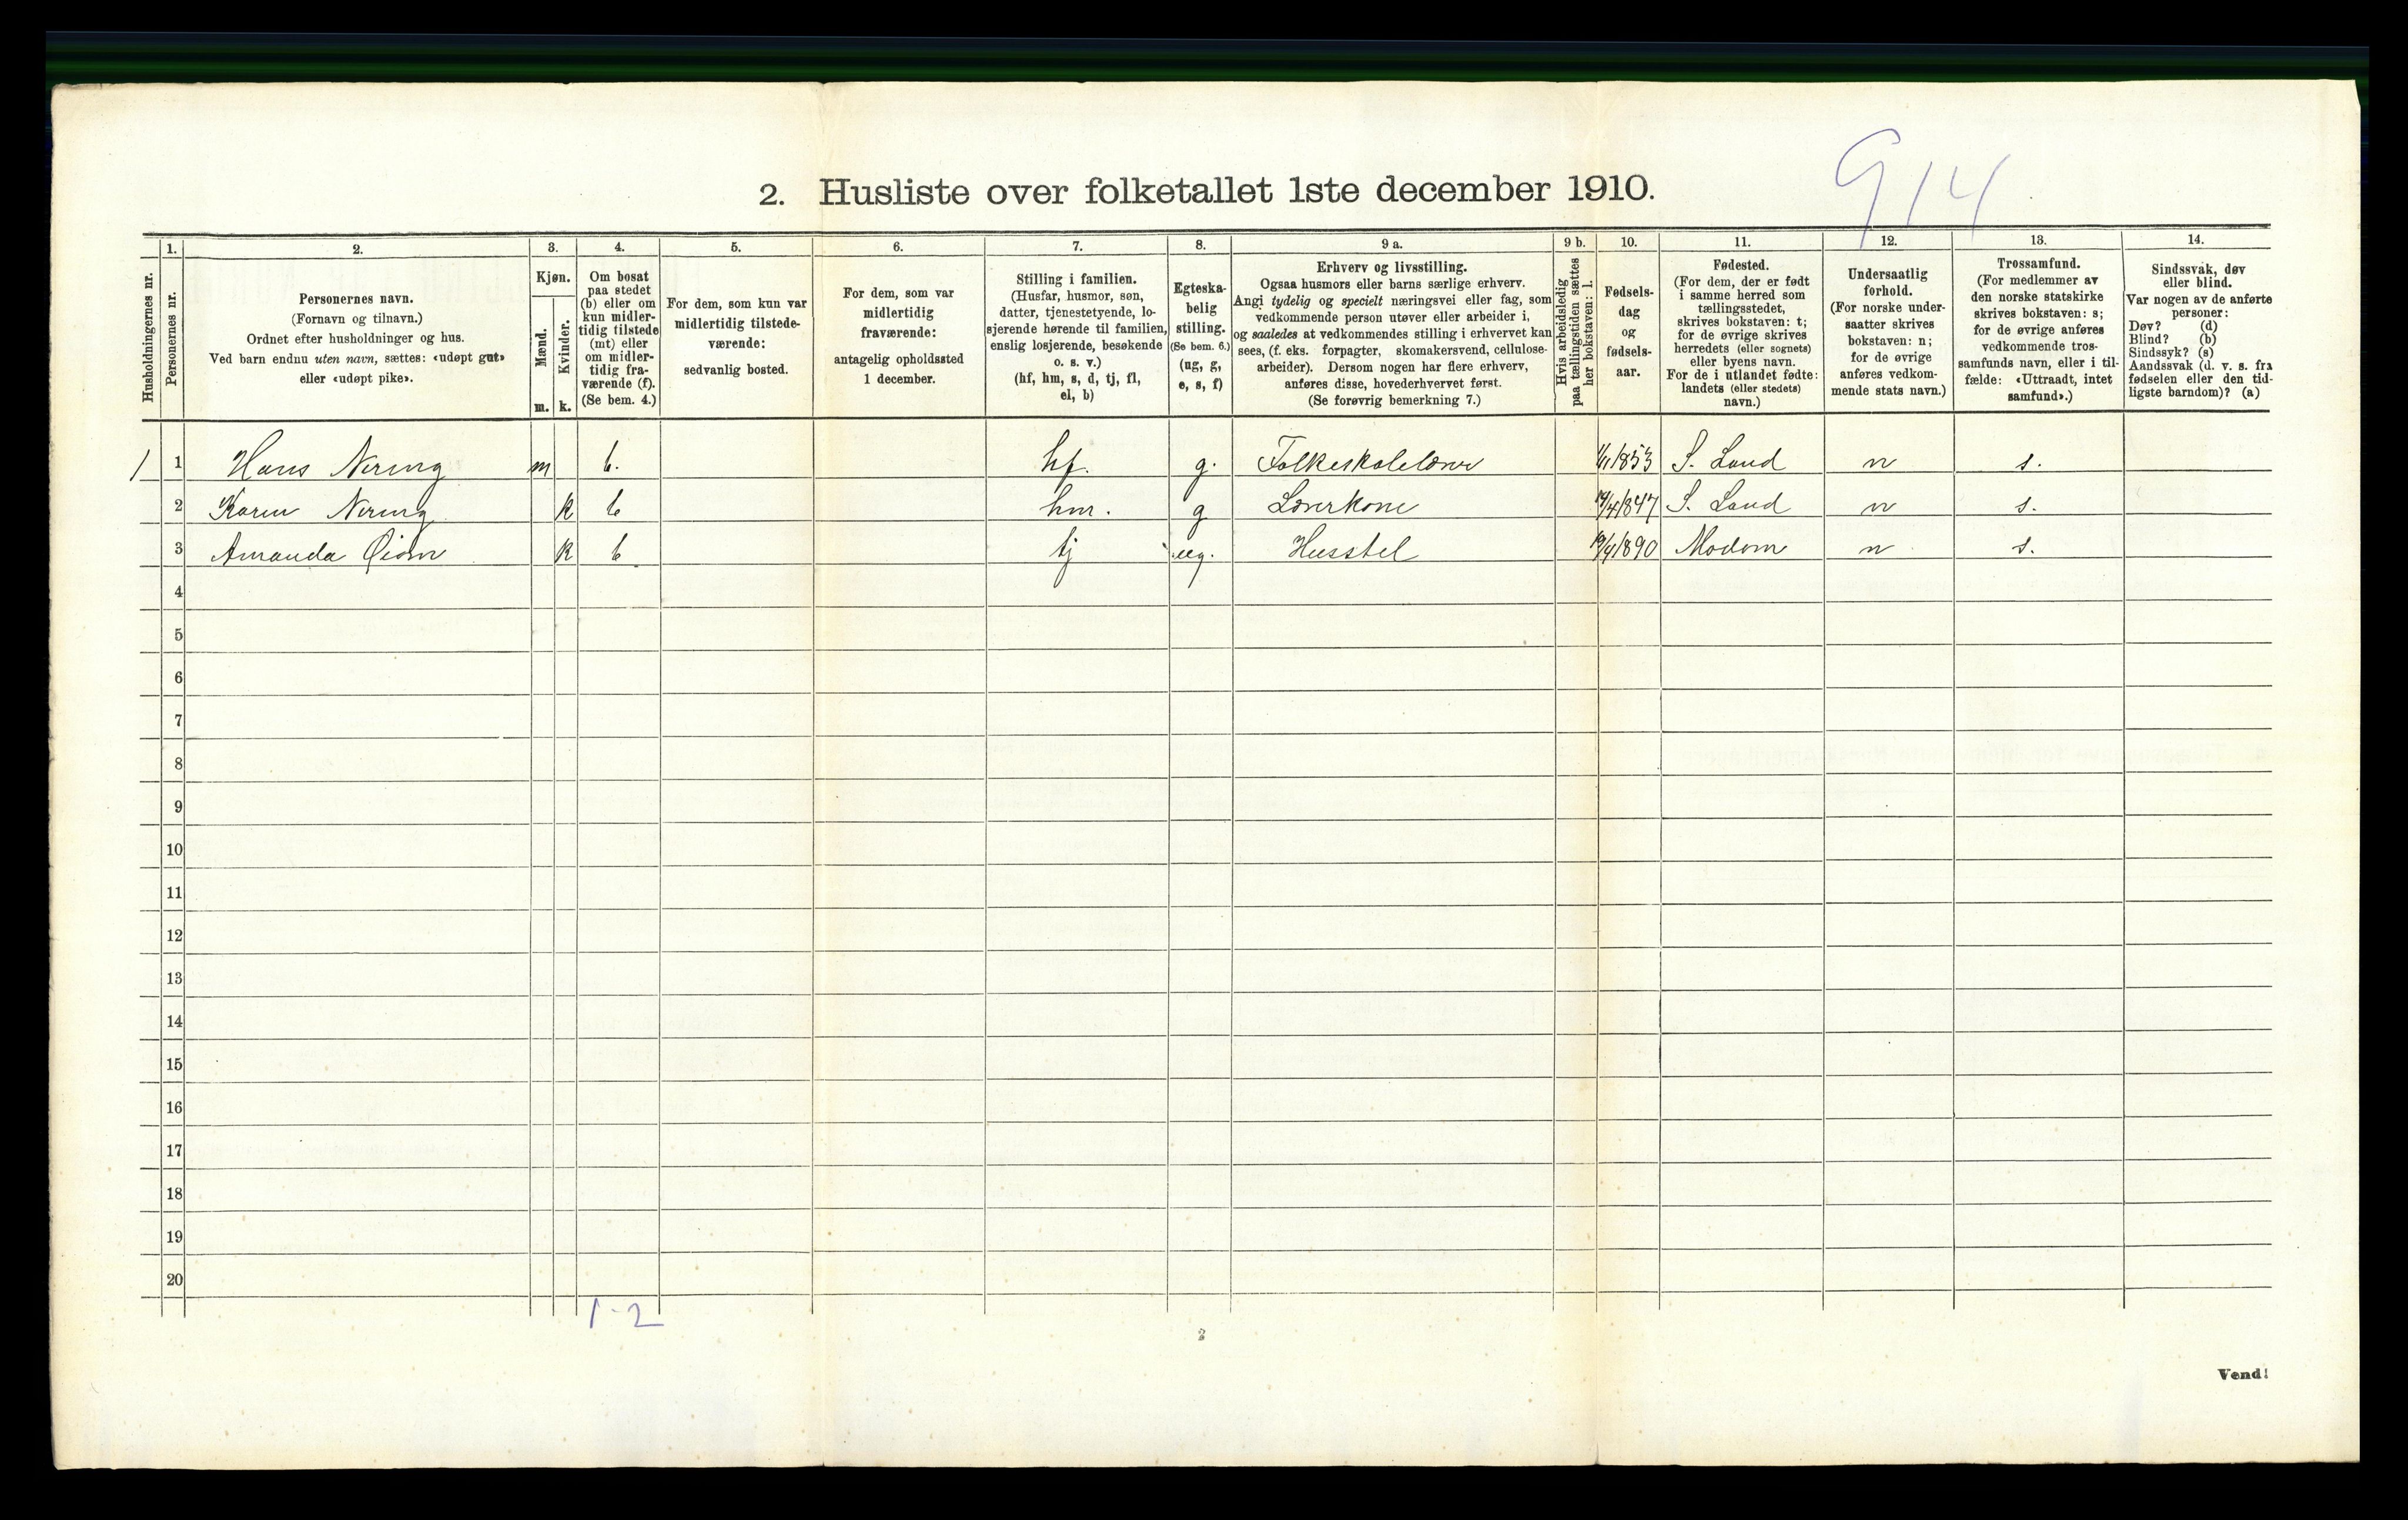 914
2. Husliste over folketallet 1ste december 1910.
Husholdningernes nr.
1.
Personernes nr.
2.
Personernes navn.
(Fornavn og tilnavn.)
Ordnet efter husholdninger og hus.
Ved barn endnu uten navn, sættes: «udøpt gut»
eller «udøpt pike».
3.
Kjøn.
Mænd.
Kvinder.
m. k.
4.
Om bosat
paa stedet
(b) eller om
kun midler-
tidig tilstede
(mt) eller
om midler-
tidig fra-
værende (f).
(Se bem. 4.)
5.
For dem, som kun var
midlertidig tilstede-
værende:
sedvanlig bosted.
6.
For dem, som var
midlertidig
fraværende:
antagelig opholdssted
1 december.
7.
Stilling i familien.
(Husfar, husmor, søn,
datter, tjenestetyende, lo-
sjerende hørende til familien,
enslig losjerende, besøkende
o. s. v.)
(hf, hm, s, d, tj, fl,
el, b)
8.
Egteska-
belig
stilling.
(Se bem. 6.)
(ug, g,
e, s, f)
9 a.
Erhverv og livsstilling.
Ogsaa husmors eller barns særlige erhverv.
Angi tydelig og specielt næringsvei eller fag, som
vedkommende person utøver eller arbeider i,
og saaledes at vedkommendes stilling i erhvervet kan
sees, (f. eks. forpagter, skomakersvend, cellulose-
arbeider). Dersom nogen har flere erhverv,
anføres disse, hovederhvervet først.
(Se forøvrig bemerkning 7.)
9 b.
Hvis arbeidsledig
paa tællingstiden sættes
her bokstaven: l.
10.
Fødsels-
dag
og
fødsels-
aar.
11.
Fødested.
(For dem, der er født
i samme herred som
tællingsstedet,
skrives bokstaven: t;
for de øvrige skrives
herredets (eller sognets)
eller byens navn.
For de i utlandet fødte:
landets (eller stedets)
navn.)
12.
Undersaatlig
forhold.
(For norske under-
saatter skrives
bokstaven: n;
for de øvrige
anføres vedkom-
mende stats navn.)
13.
Trossamfund.
(For medlemmer av
den norske statskirke
skrives bokstaven: s;
for de øvrige anføres
vedkommende tros-
samfunds navn, eller i til-
fælde: «Uttraadt, intet
samfund».)
14.
Sindssvak, døv
eller blind.
Var nogen av de anførte
personer:
Døv? (d)
Blind? (b)
Sindssyk? (s)
Aandssvak (d. v. s. fra
fødselen eller den tid-
ligste barndom)? (a)
1 1 Hans Nering m b. hf. g. Folkeskolelærer 1/11 1853 S. Land n s.
2 Karen Nering k b hm. g Lærerkone 14/4 1847 S. Land n s.
3 Amanda Øiom k b tj ug. Husstel 19/4 1890 Modum n s.
4
5
6
7
8
9
10
11
12
13
14
15
16
17
18
19
20
1-2
2
Vend!